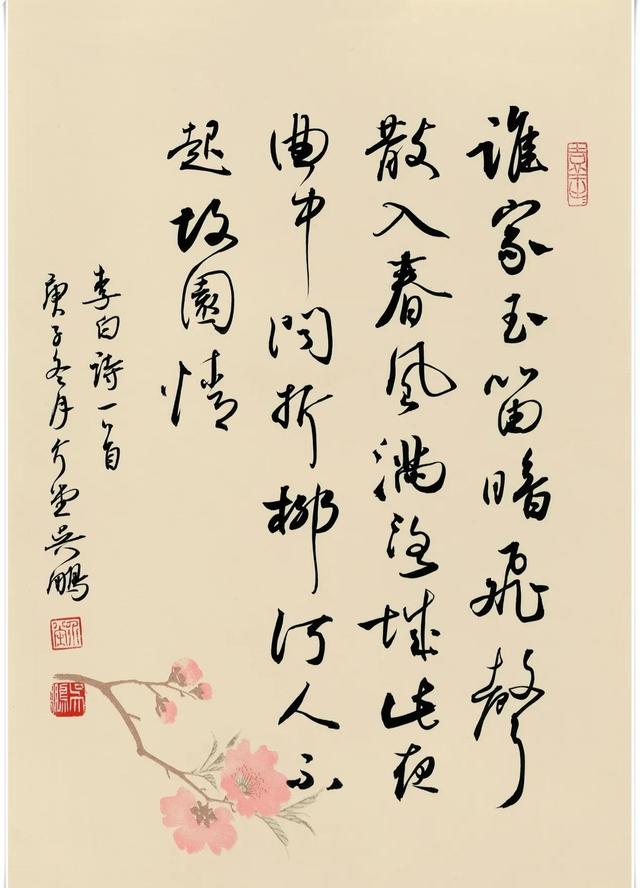 誰家玉笛暗飛聲
散入春風滿洛城此夜
曲中聞折柳何人不
起故園情
李白詩一首
庚子冬月堂吳鵬
吳鵬